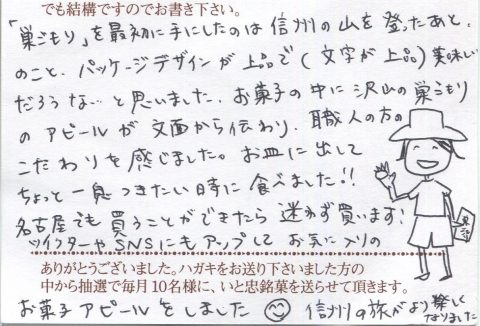 でも結構ですのでお書き下さい。
「巣ごもり」を最初に手にしたのは信州の山を登ったあと、
のこと、パッケージデザインが上品で(文字が上品)美味しい
だろうな…と思いました。お菓子の中に沢山の巣ごもり
のアピールが文面から伝わり、職人の方の
こだわりを感じました。お皿に出して
ちょっと一息つきたい時に食べました!!
名古屋でも買うことができたら迷わず買います!
ツイッターやSNSにもアップしてお気に入りの
ありがとうございました。ハガキをお送り下さいました方の
中から抽選で毎月10名様に、いと忠銘菓を送らせて頂きます。
お菓子アピールをしました 信州の旅がより楽しく
なりました